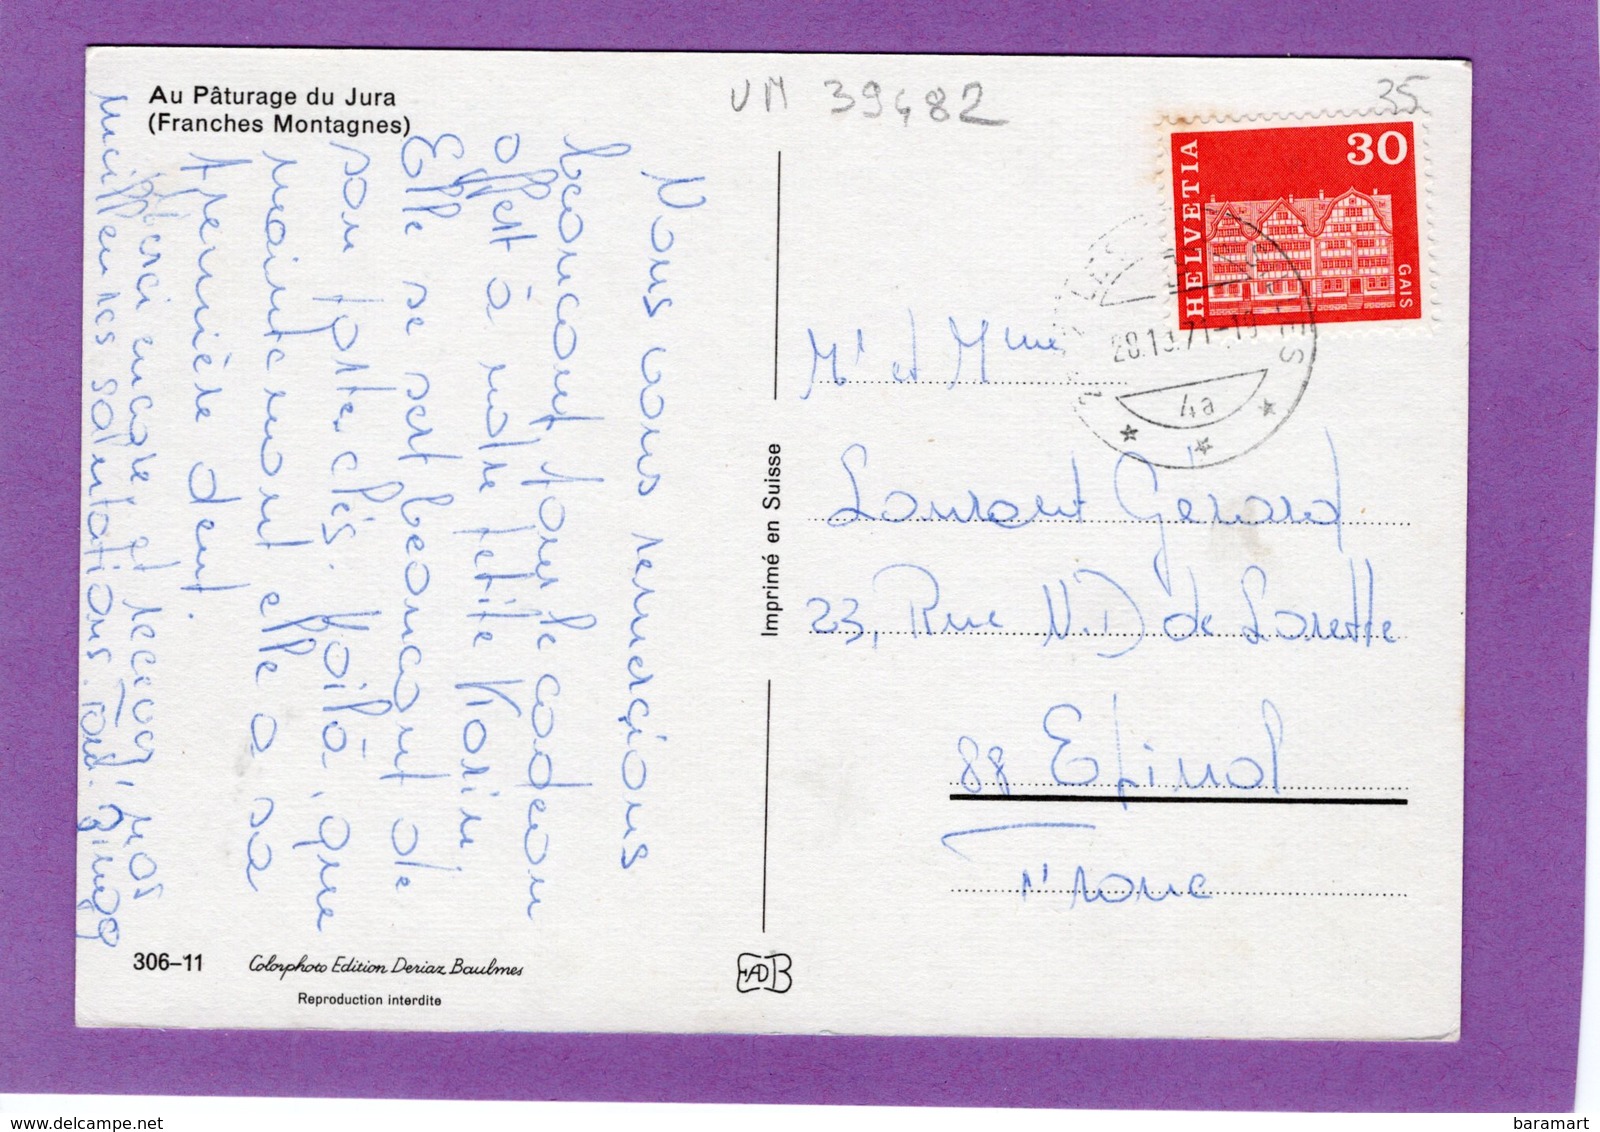 Au Pâturage du Jura
(Franches Montagnes)
VM 39482
35
HELVETIA
30
GAIS
28.10.71-18
4a
Nous vous remercions
beaucoup pour le cadeau
offert à notre petite Karin
Elle se sert beaucoup de
son porte-clés. Voilà, que
maintenant elle a sa
première dent.
Merci encore et recevez nos
meilleures salutations.
Mr et Mme
Laurent Gérard
23, Rue N.D de Lorette
88 Epinal
France
Imprimé en Suisse
306-11
Colorphoto Edition Deriaz Baulmes
Reproduction interdite
EADB
baramart